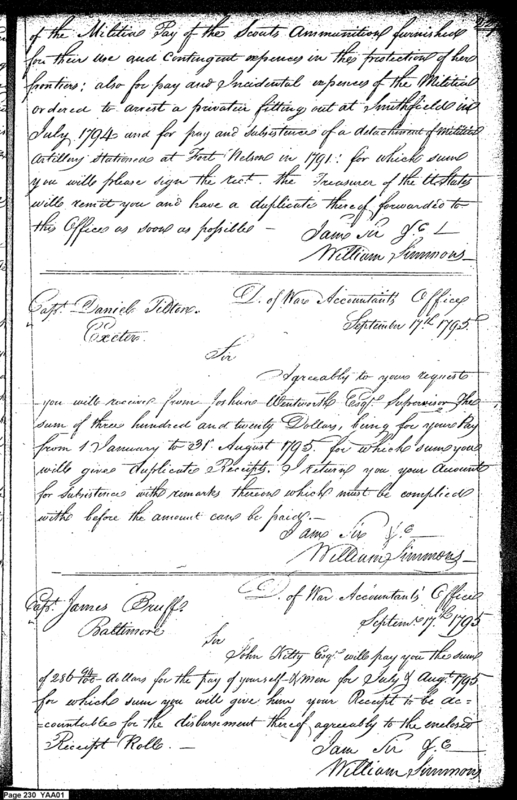 of the Militia Pay of the Scouts Ammunition furnished
for their Use and Contingent expences in the protection of her
frontiers: also for pay and Incidental expences of the Militia
ordered to arrest a privateer fitting out at Smithfield in
July 1794 and for pay and subsistence of a detachment of militia
Artillery stationed at Fort Nelson in 1791: for which sum
you will please sign the rect. the Treasurer of the U States
will remit you and have a duplicate thereof forwarded to
this Office as soon as possible —
I am Sir &C
William Simmons
Capt. Daniel Tilton. D. of War Accountants Office
Exeter. September 17th 1795
Sir
Agreeably to your request
you will receive from Joshua Wentworth Esqr. Supervisor the
sum of three hundred and twenty Dollars, being for your Pay
from 1 January to 31 August 1795. for which sum you
will give duplicate Receipts. I return you your Account
for subsistence with remarks thereon which must be complied
with before the amount can be paid. —
I am Sir &C —
William Simmons —
Capt. James Bruff D. of War Accountants Office
Baltimore Septemr 17th 1795
Sir
John Kitty Esqr. will pay you the sum
of 286 dollars for the pay of yourself & men for July & Augt. 1795
for which sum you will give him your Receipt to be ac=
=countable for the disbursement thereof agreeably to the enclosed
Receipt Roll. —
I am Sir &C —
William Simmons
Page 230 YAA01